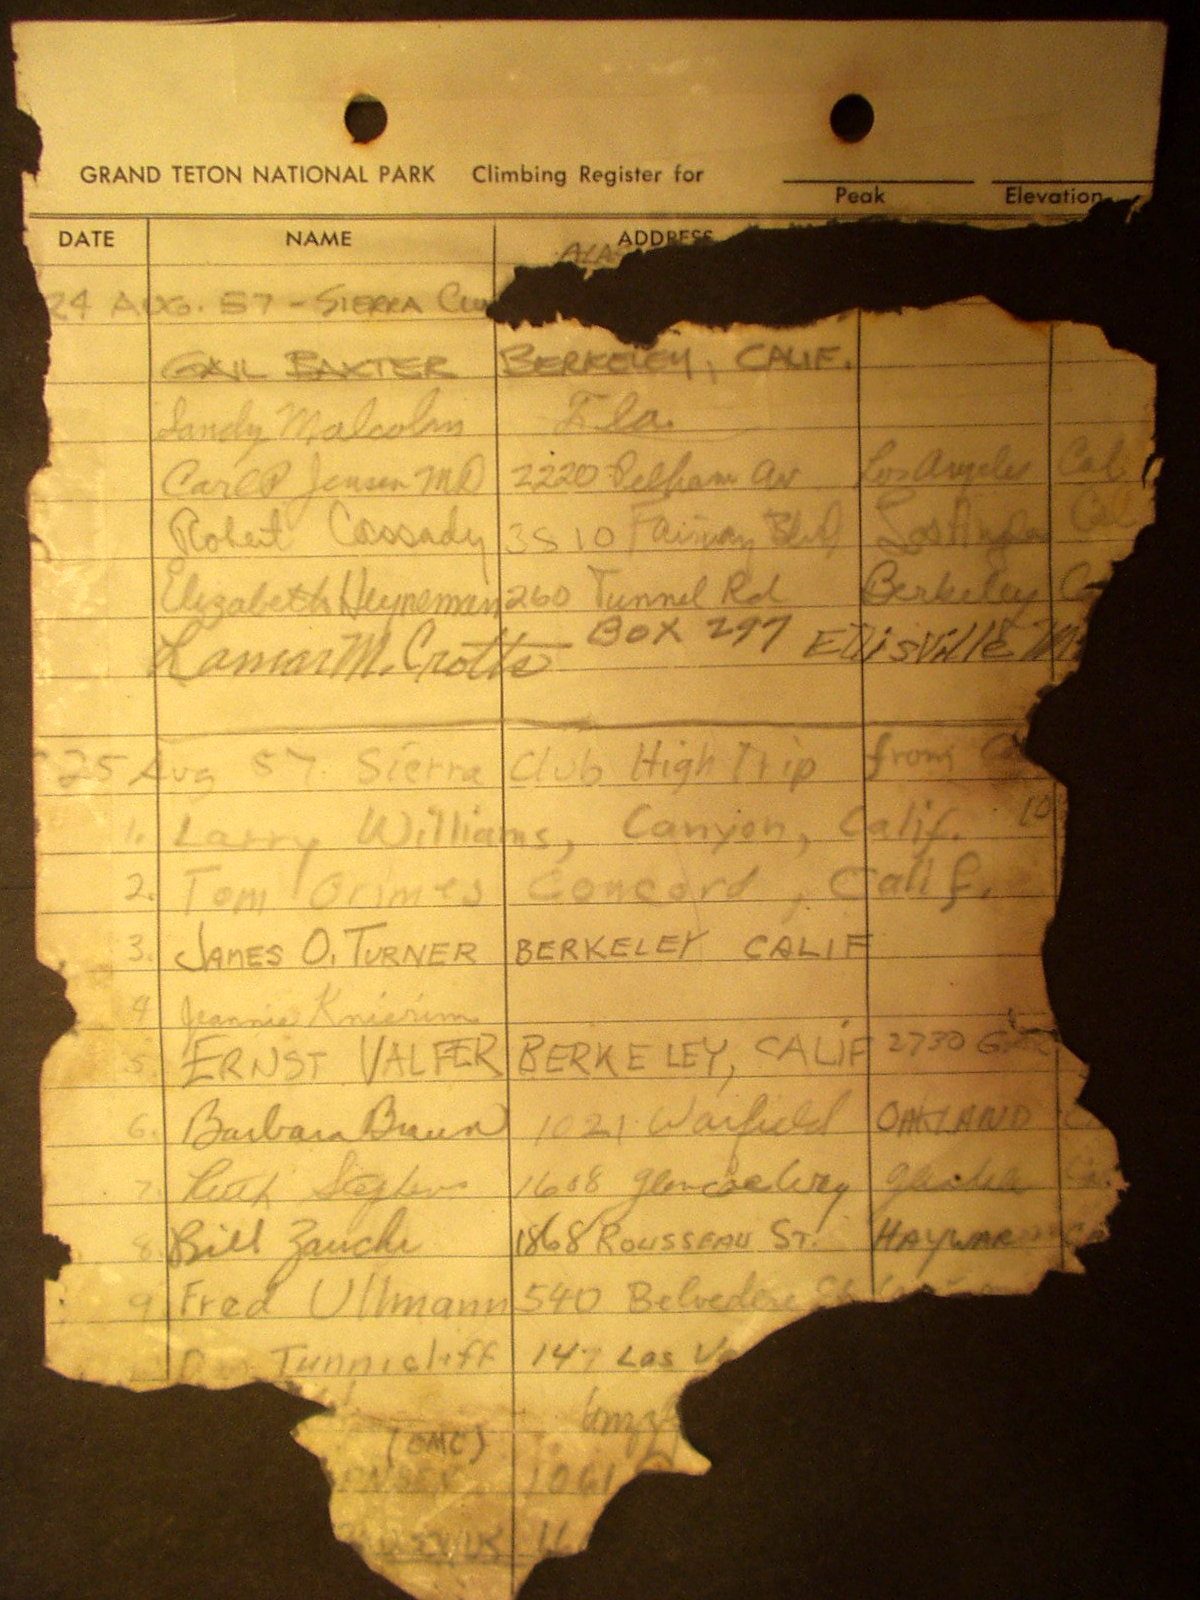 GRAND TETON NATIONAL PARK Climbing Register for
Peak Elevation
DATE NAME ADDRESS
24 AUG. 57 - SIERRA
GAIL BAXTER BERKELEY, CALIF.
Sandy Malcolm Fla.
Carl P Jensen MD 2220 Pelham Av Los Angeles Cal
Robert Cassady 3810 Fairway Blvd Los Angeles Cal
Elizabeth Heyneman 260 Tunnel Rd Berkeley
Lamar M. Crotts BOX 297 Ellisville
25 Aug 57 Sierra Club High Trip from
1. Larry Williams, Canyon, Calif.
2. Tom Grimes Concord, Calif.
3. JAMES O. TURNER BERKELEY CALIF
4 Jeannie Knierim
5. ERNST VALFER BERKELEY, CALIF 2730
6. Barbara Braun 1021 Warfield OAKLAND
7. Ruth Stephens 1608
8. Bill Zauche 1868 ROUSSEAU ST. HAYWARD
9. Fred Ullmann 540 Belvedere St
Tunnicliff 147 Las
(OMC)
1061